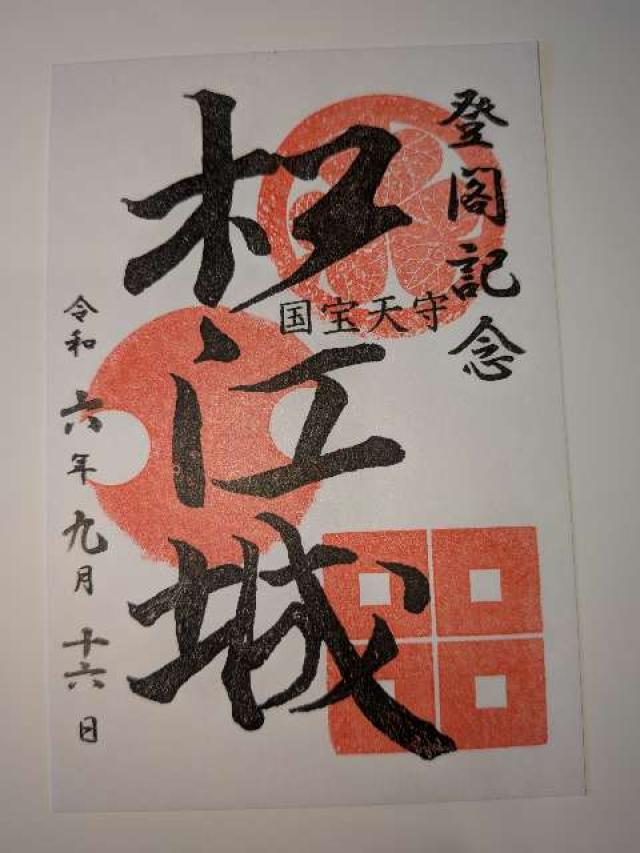 登閣記念
国宝天守
松江城
令和六年九月十六日